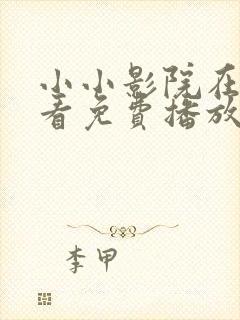 小小影院在
看免費播放
李甲